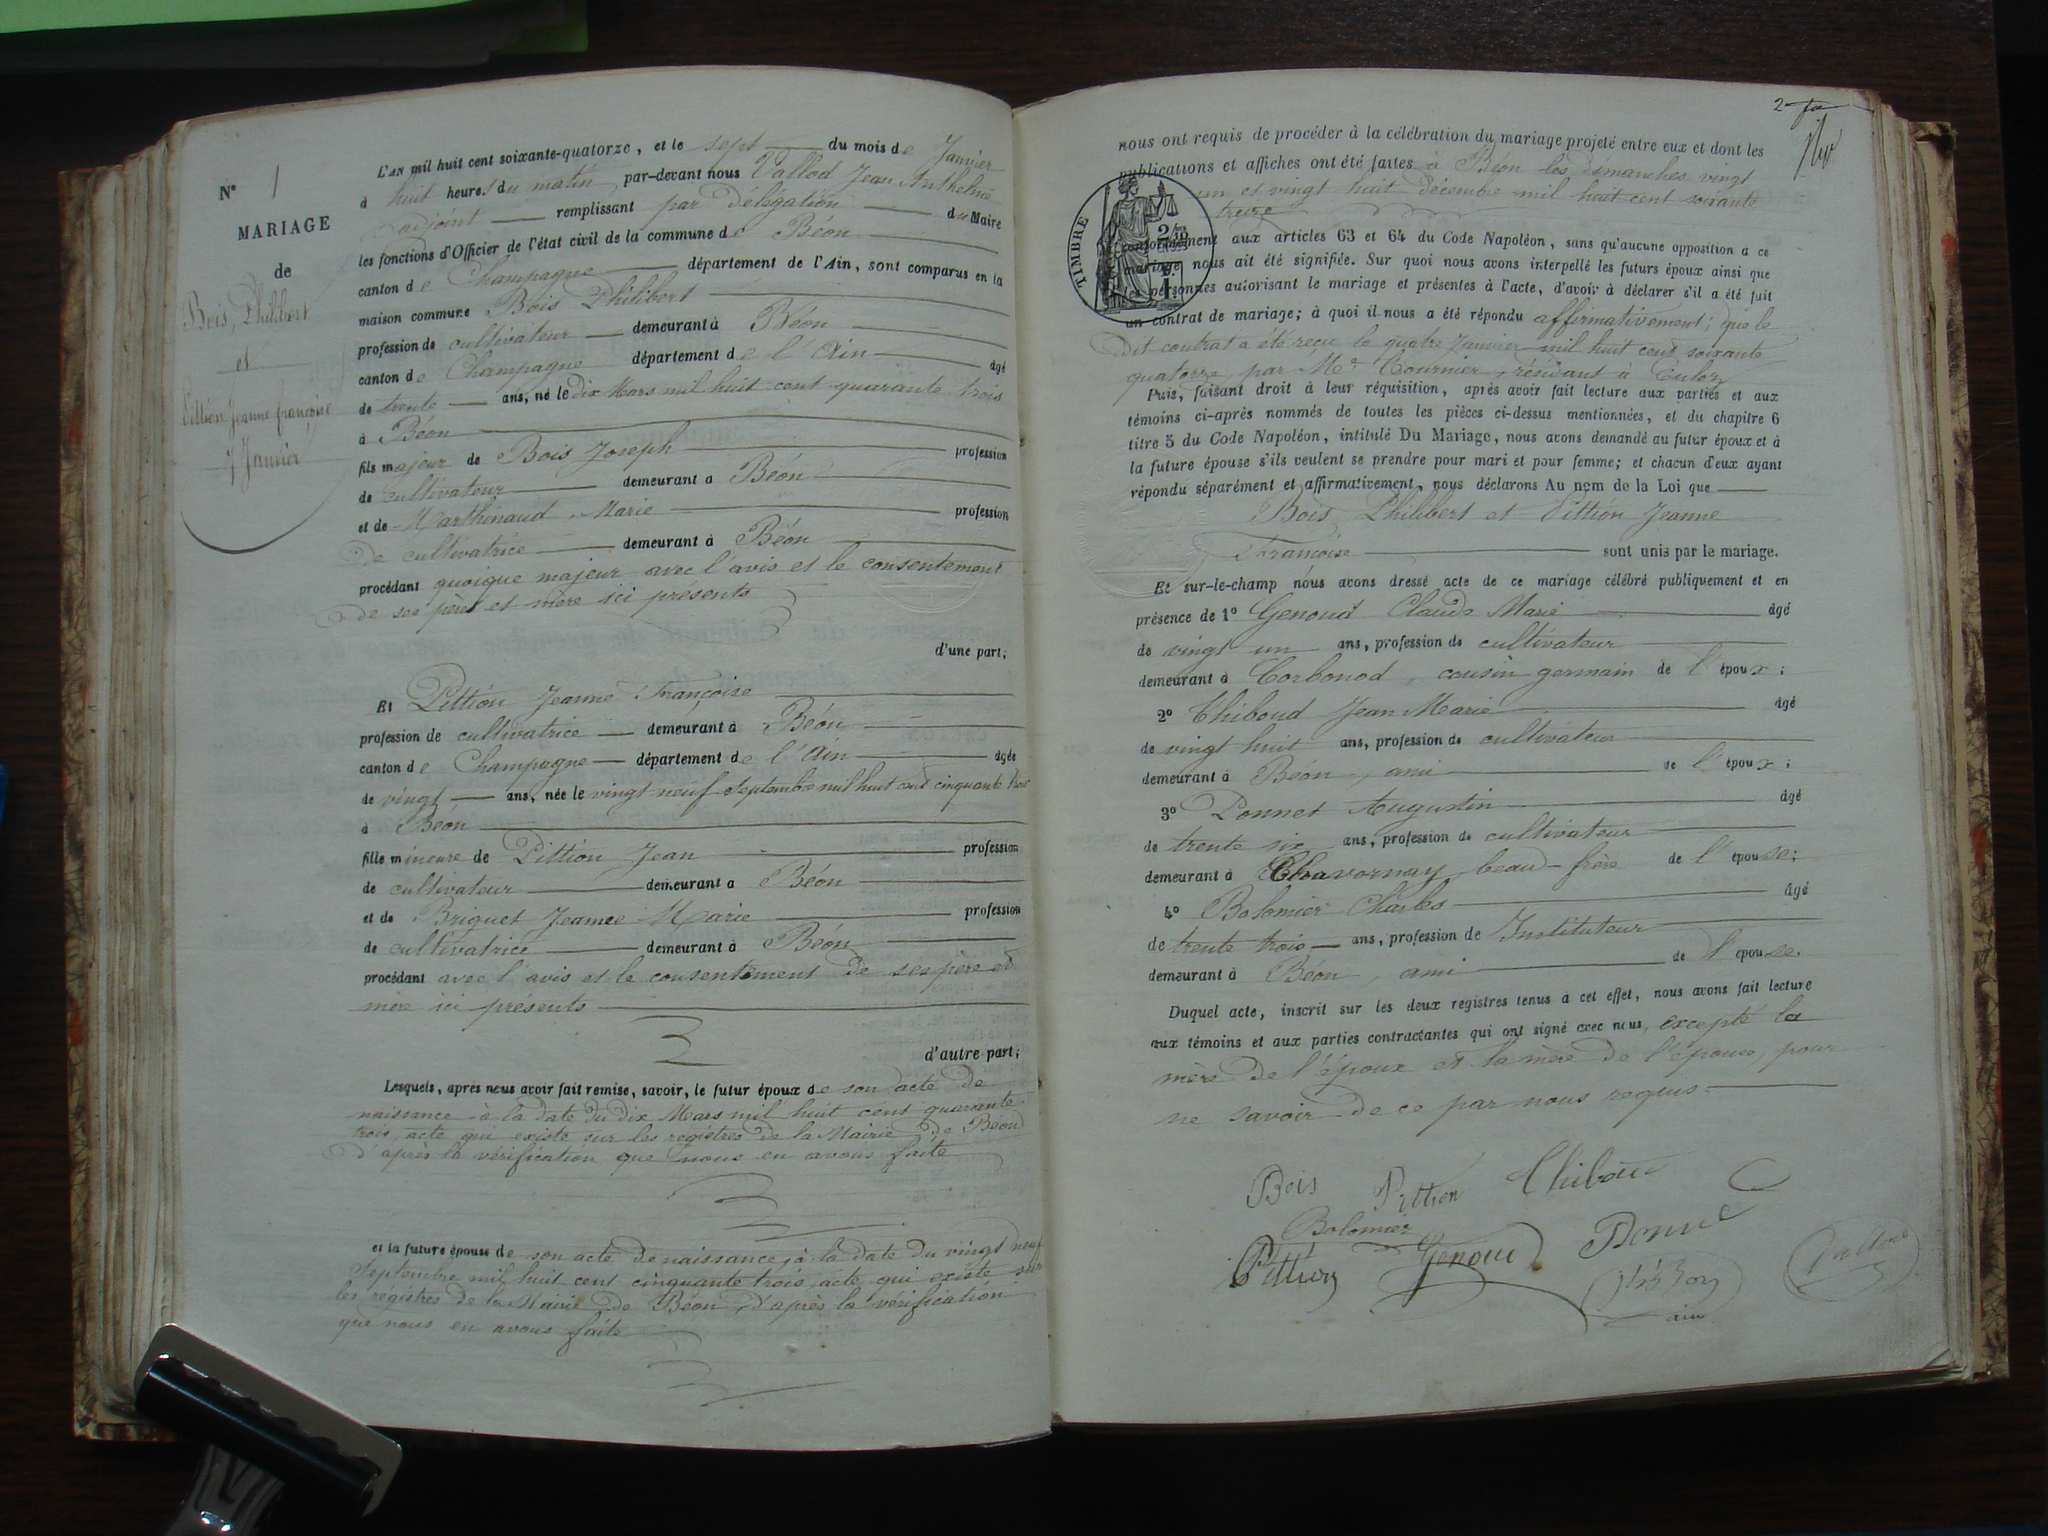 N° 1
MARIAGE
de
Bois, Philibert
et
Pittion Jeanne françoise
7 Janvier
L'AN mil huit cent soixante-quatorze, et le sept du mois de Janvier
à huit heures du matin par-devant nous Vallod Jean Anthelme
adjoint remplissant par délégation du Maire
les fonctions d'Officier de l'état civil de la commune de Béon
canton de Champagne département de l'Ain, sont comparus en la
maison commune Bois Philibert
profession de cultivateur demeurant à Béon
canton de Champagne département de l'Ain âgé
de trente ans, né le dix Mars mil huit cent quarante trois
à Béon
fils majeur de Bois Joseph profession
de cultivateur demeurant à Béon
et de Marthinaud Marie profession
de cultivatrice demeurant à Béon
procédant quoique majeur avec l'avis et le consentement
de ses père et mère ici présents
d'une part;
Et Pittion Jeanne Françoise
profession de cultivatrice demeurant à Béon
canton de Champagne département de l'Ain âgée
de vingt ans, née le vingt neuf Septembre mil huit cent cinquante trois
à Béon
fille mineure de Pittion Jean profession
de cultivateur demeurant à Béon
et de Briguet Jeanne Marie profession
de cultivatrice demeurant à Béon
procédant avec l'avis et le consentement de ses père et
mère ici présents
d'autre part;
Lesquels, après nous avoir fait remise, savoir, le futur époux de son acte de
naissance à la date du dix Mars mil huit cent quarante
trois, acte qui existe sur les registres de la Mairie de Béon
d'après la vérification que nous en avons faite
et la future épouse de son acte de naissance, à la date du vingt neuf
Septembre mil huit cent cinquante trois, acte qui existe sur
les régistres de la Mairie de Béon, d'après la vérification
que nous en avons faite
2
nous ont requis de procéder à la célébration du mariage projeté entre eux et dont les
publications et affiches ont été faites à Béon les dimanches vingt
un et vingt huit décembre mil huit cent soixante
treize
TIMBRE
conformément aux articles 63 et 64 du Code Napoléon, sans qu'aucune opposition a ce
mariage nous ait été signifiée. Sur quoi nous avons interpellé les futurs époux ainsi que
les personnes autorisant le mariage et présentes à l'acte, d'avoir à déclarer s'il a été fait
un contrat de mariage; à quoi il nous a été répondu affirmativement; que le
dit contrat a été reçu le quatre Janvier mil huit cent soixante
quatorze par Me Cournier, résidant à Culoz
Puis, faisant droit à leur réquisition, après avoir fait lecture aux parties et aux
témoins ci-après nommés de toutes les pièces ci-dessus mentionnées, et du chapitre 6
titre 5 du Code Napoléon, intitulé Du Mariage, nous avons demandé au futur époux et à
la future épouse s'ils veulent se prendre pour mari et pour femme; et chacun d'eux ayant
répondu séparément et affirmativement, nous déclarons Au nom de la Loi que
Bois Philibert et Pittion Jeanne
Françoise sont unis par le mariage.
Et sur-le-champ nous avons dressé acte de ce mariage célébré publiquement et en
présence de 1° Genoud Claude Marie âgé
de vingt un ans, profession de cultivateur
demeurant à Corbonod, cousin germain de l'époux;
2° Thiboud Jean Marie âgé
de vingt huit ans, profession de cultivateur
demeurant à Béon, ami de l'époux;
3° Ponnet Augustin âgé
de trente six ans, profession de cultivateur
demeurant à Chavornay beau-frère de l'épouse;
4° Bolomier Charles âgé
de trente trois ans, profession de Instituteur
demeurant à Béon, ami de l'épouse.
Duquel acte, inscrit sur les deux registres tenus à cet effet, nous avons fait lecture
aux témoins et aux parties contractantes qui ont signé avec nous, excepté la
mère de l'époux et la mère de l'épouse, pour
ne savoir de ce par nous requis
Bois Pittion Thiboud
Bolomier
Pittion Genoud Ponnet